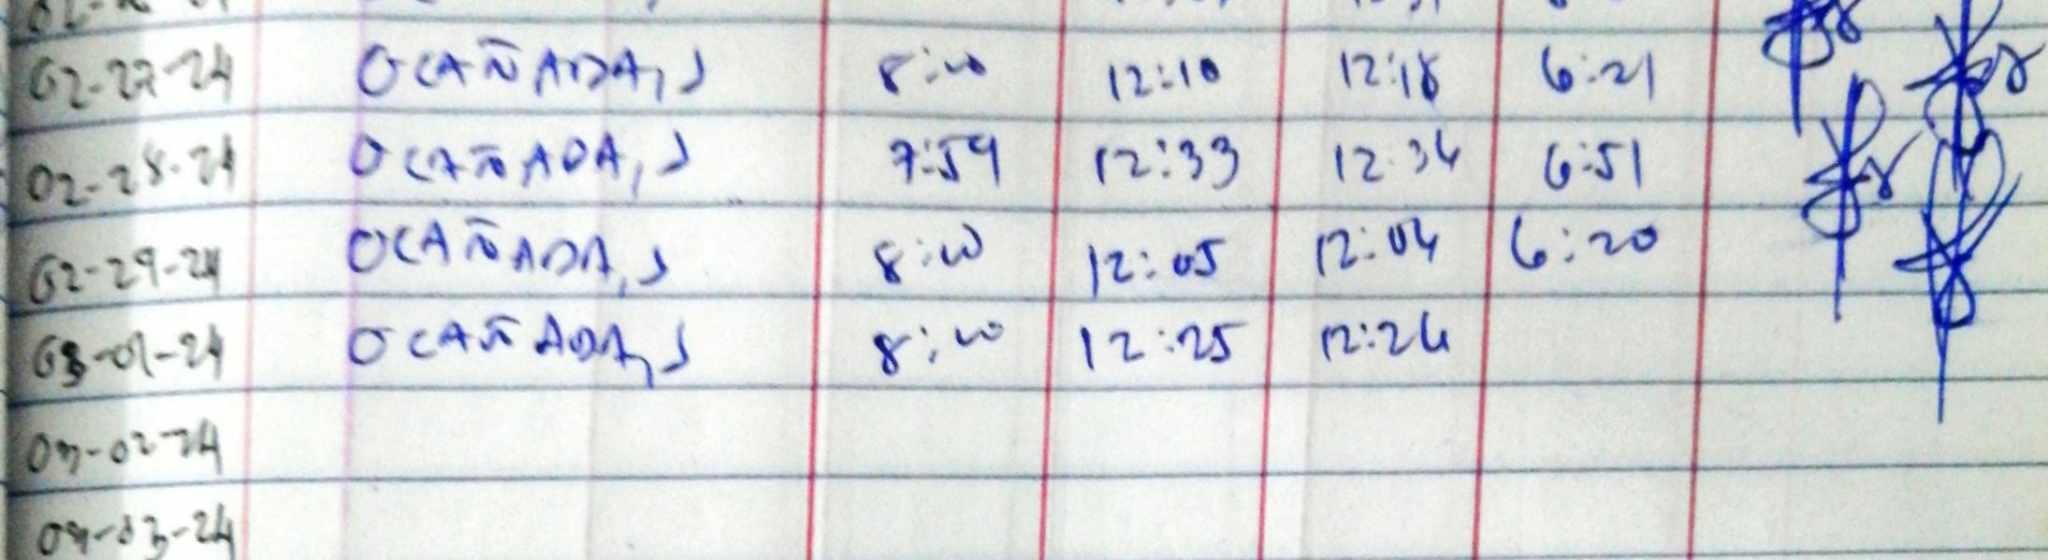 02-27-24 OCAÑADA, J 8:00 12:10 12:18 6:21
02-28-24 OCAÑADA, J 7:59 12:33 12:34 6:51
02-29-24 OCAÑADA, J 8:00 12:05 12:04 6:20
03-01-24 OCAÑADA, J 8:00 12:25 12:26
03-02-24
03-03-24